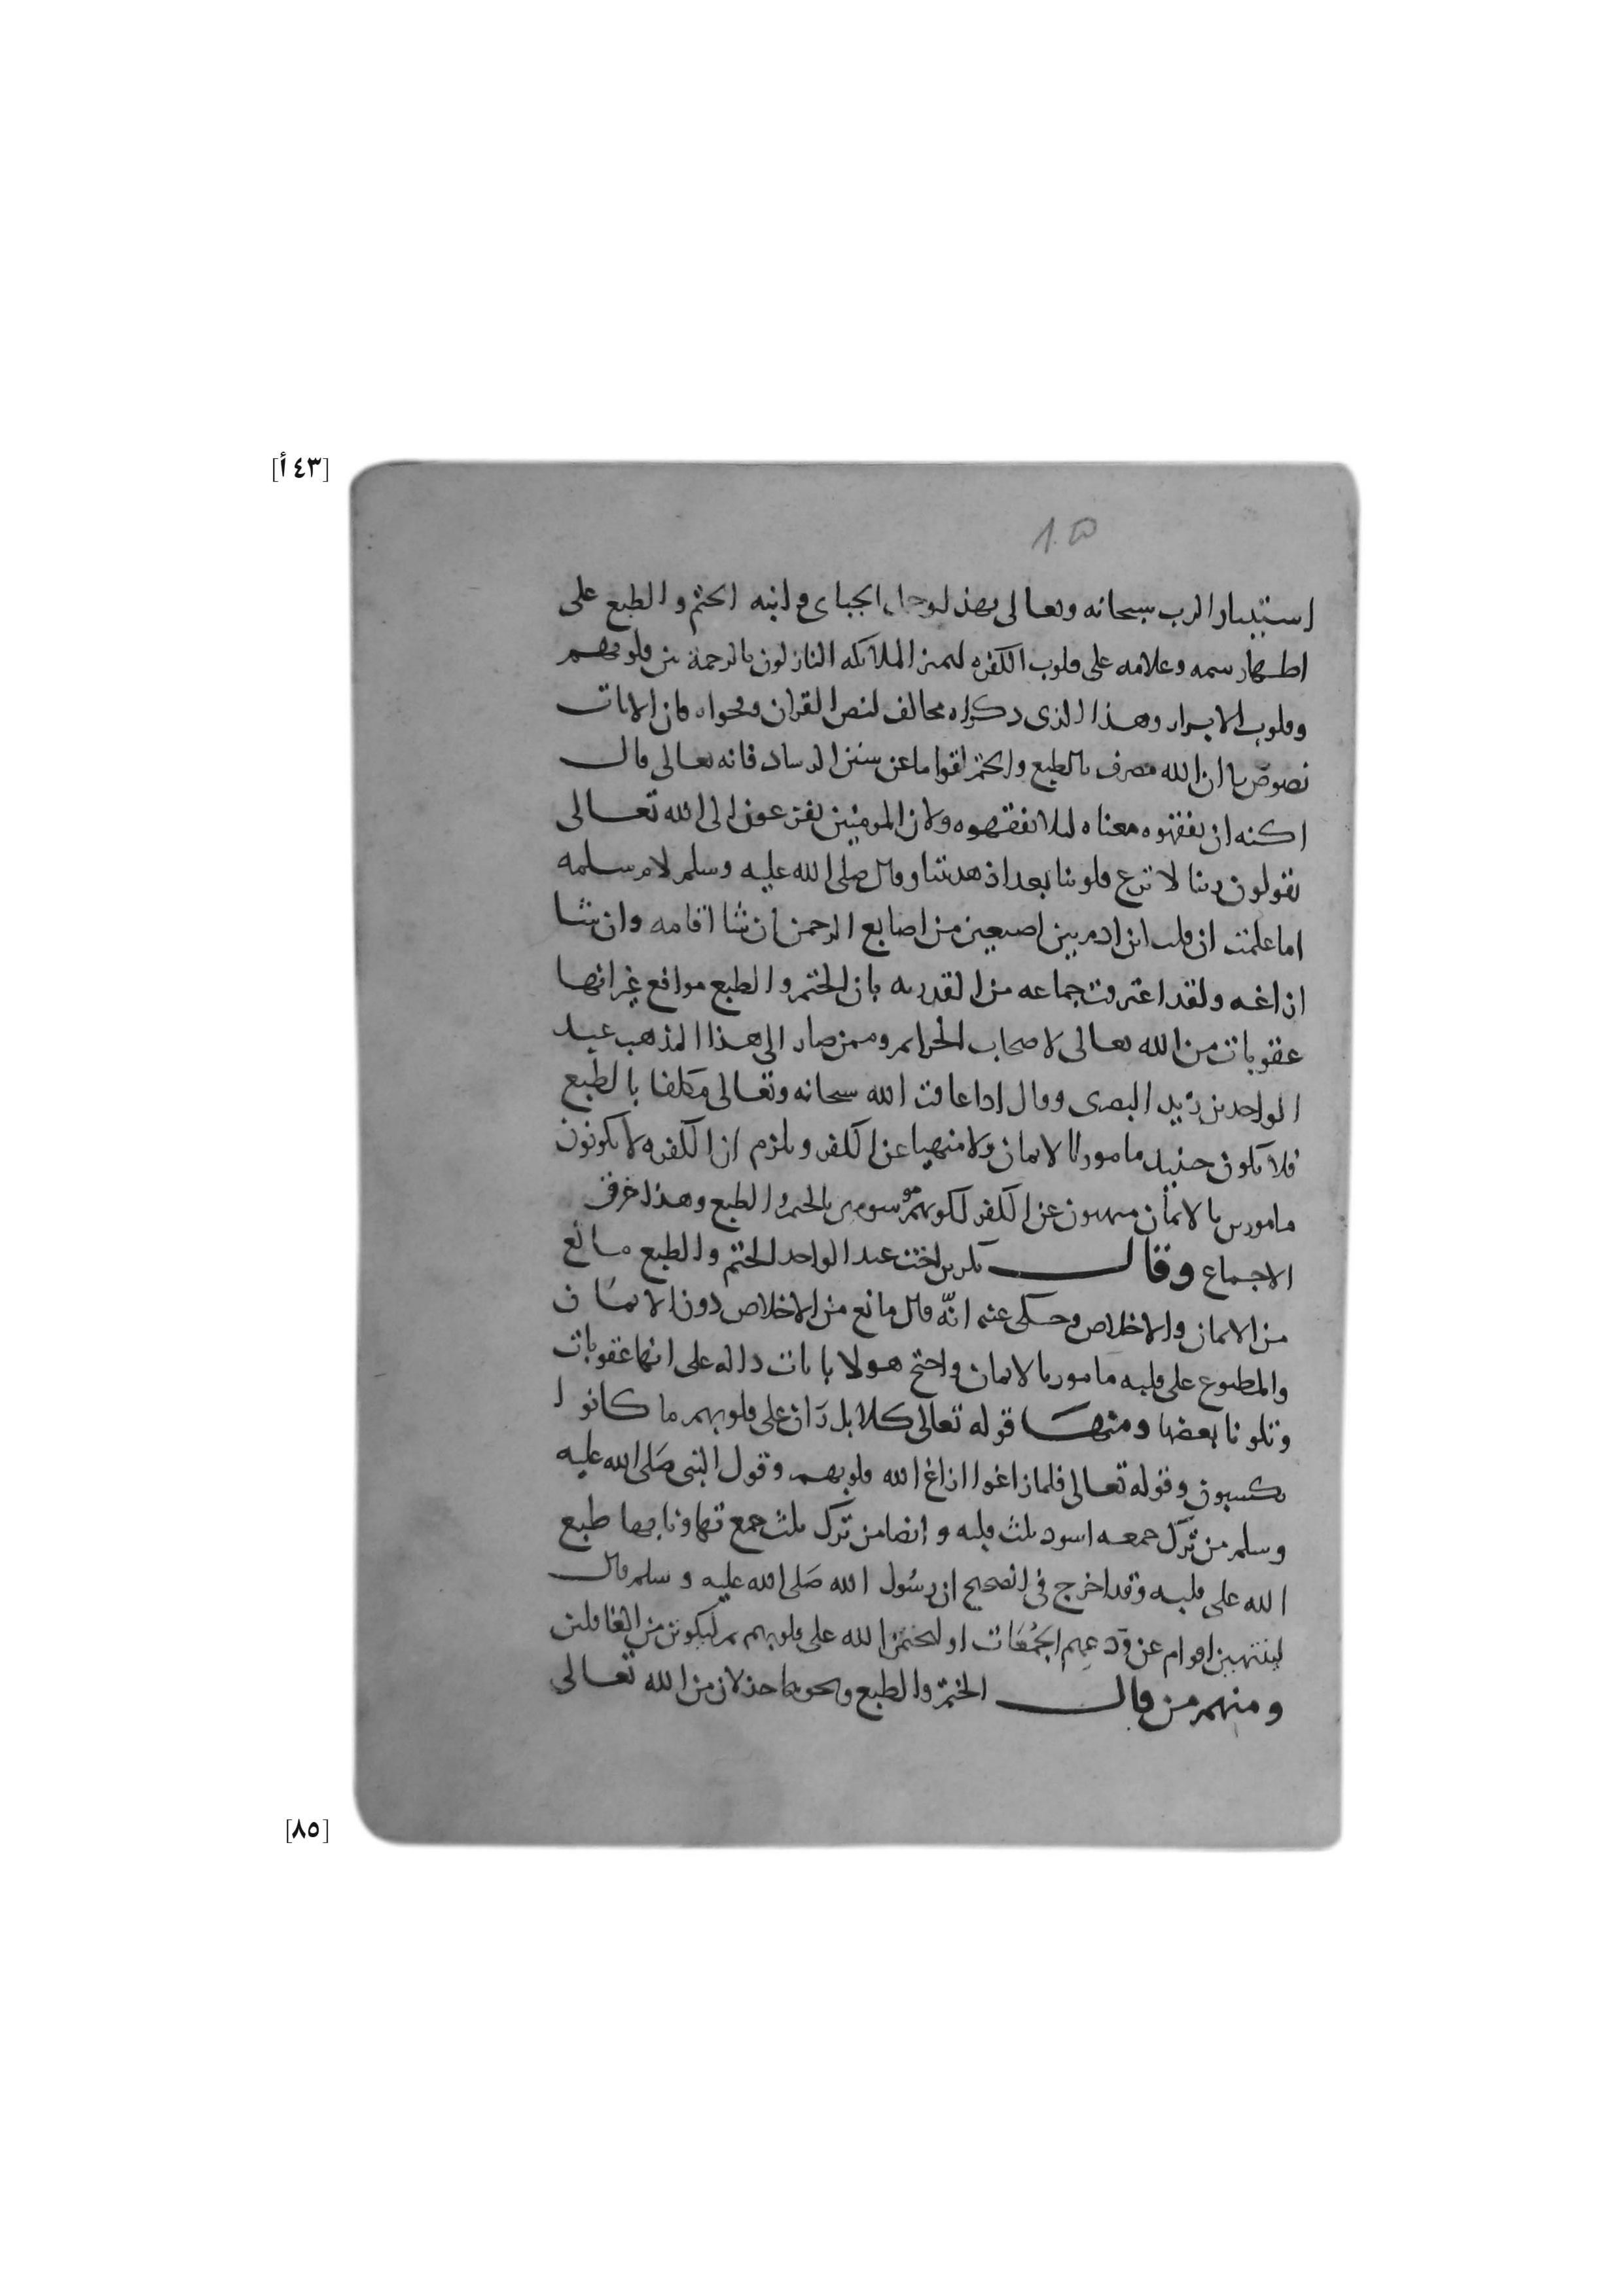 [٤٣ أ]
٨٥
استيثار الرب سبحانه وتعالى بهذا وحمل الجباى وابنه الختم والطبع على
اظهار سمه وعلامه على قلوب الكفره ليميز الملائكه النازلون بالرحمة بين قلوبهم
وقلوب الابرار وهذا الذى ذكراه مخالف لنص القران وفحواه فان الايات
نصوص بان الله صرف بالطبع والختم اقواما عن سنن الرشاد فانه تعالى قال
اكنه ان يفقهوه معناه ليلا يفقهوه ولان المومنين يفزعون الى الله تعالى
يقولون ربنا لا تزغ قلوبنا بعد اذ هديتنا وقال صلى الله عليه وسلم لام سلمه
اما علمت ان قلب ابن ادم بين اصبعين من اصابع الرحمن ان شا اقامه وان شا
ازاغه ولقد اعترفت جماعه من القدريه بان الختم والطبع موانع غير انها
عقوبات من الله تعالى لاصحاب الجرايم وممن صار الى هذا المذهب عبد
الواحد بن زيد البصرى وقال اذا عاقت الله سبحانه وتعالى مكلفا بالطبع
فلا يكون حينيذ مامورا بالايمان ولا منهيا عن الكفر ويلزم ان الكفره لا يكونون
مامورين بالايمان منهيون عن الكفر لكونهم موسومين بالختم والطبع وهذا خرق
الاجماع وقال بكر بن اخت عبد الواحد الختم والطبع مانع
من الايمان والاخلاص وحكى عنه انه قال مانع من الاخلاص دون الايمان
والمطبوع على قلبه مامور بالايمان واحتج هولا بايات داله على انها عقوبات
وتلونا بعضها ومنها قوله تعالى كلا بل ران على قلوبهم ما كانوا
يكسبون وقوله تعالى فلما زاغوا ازاغ الله قلوبهم وقول النبى صلى الله عليه
وسلم من ترك جمعه اسود ثلث قلبه وايضا من ترك ثلث جمع تهاونا بها طبع
الله على قلبه وقد اخرج فى الصحيح ان رسول الله صلى الله عليه وسلم قال
لينتهين اقوام عن ودعهم الجمعات او ليختمن الله على قلوبهم ثم ليكونن من الغافلين
ومنهم من قال الختم والطبع ونحوهما خذلان من الله تعالى
[٨٥]